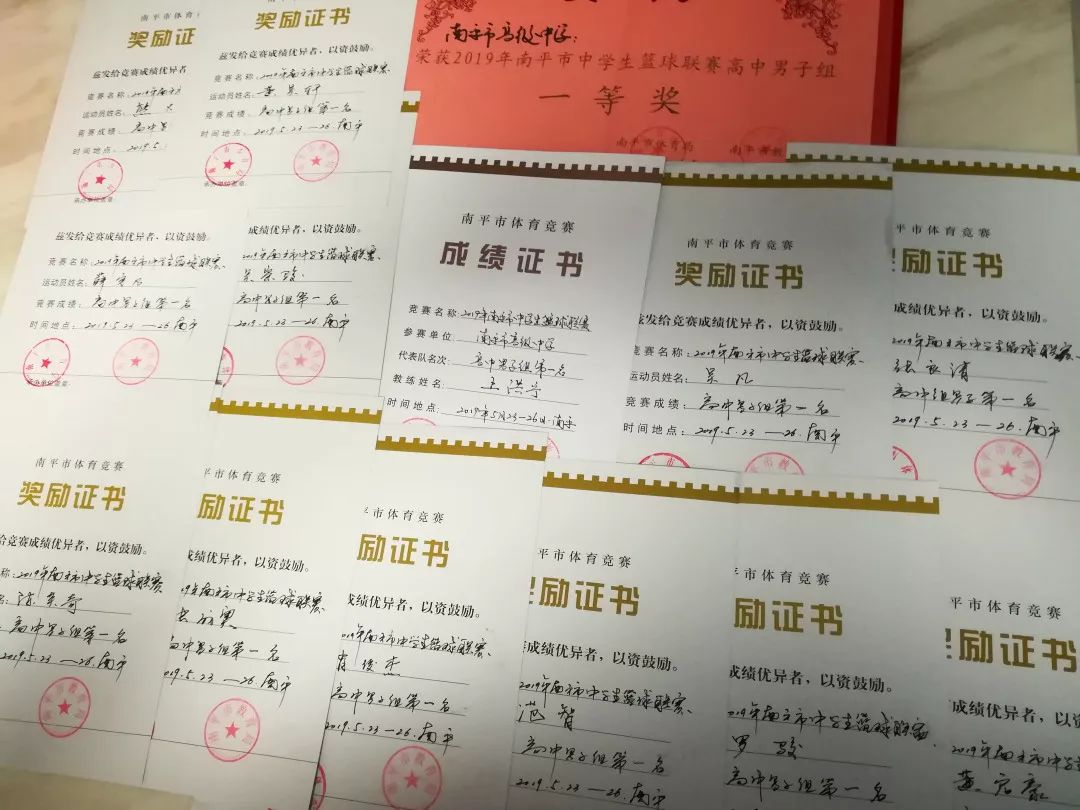 南平市体育竞
奖励证
兹发给竞赛成绩优异者
竞赛名称:2019年南平
运动员姓名:熊
竞赛成绩:高中男
时间地点:2019.5
承办单位盖章:
南平市体育竞赛
奖励证书
兹发给竞赛成绩优异者,以资鼓励。
竞赛名称:2019年南平市中学生篮球联赛
运动员姓名:
竞赛成绩:高中男子组第一名
时间地点:2019.5.23—26.南平
承办单位盖章:
南平市高级中学:
荣获2019年南平市中学生篮球联赛高中男子组
一等奖
南平市体育局
南平市教
兹发给竞赛成绩优异者,以资鼓励。
竞赛名称:2019年南平市中学生篮球联赛
运动员姓名:薛
竞赛成绩:高中男子组第一名
时间地点:2019.5.23—26南平
承办单位盖章:
成绩优异者,以资鼓励。
2019年南平市中学生篮球联赛
吴
高中男子组第一名
2019.5.23—26南平
南平市体育竞赛
成绩证书
竞赛名称:2019年南平市中学生篮球联赛
参赛单位:南平市高级中学
代表队名次:高中男子组第一名
教练姓名:王洪亭
时间地点:2019年5月23—26日.南平
南平市体育竞赛
奖励证书
兹发给竞赛成绩优异者,以资鼓励。
竞赛名称:2019年南平市中学生篮球联赛
运动员姓名:吴凡
竞赛成绩:高中男子组第一名
时间地点:2019.5.23—26.南平
南平市体育竞赛
励证书
成绩优异者,以资鼓励。
2019年南平市中学生篮球联赛
张
高中组男子第一名
2019.5.23—26.南平
南平市体育竞赛
奖励证书
给竞赛成绩优异者,以资鼓励。
称:2019年南平市中学生篮球联赛
高中男子组第一名
2019.5.23—26.南平
平市体育竞赛
励证书
成绩优异者,以资鼓励。
年南平市中学生篮球联赛
高中男子组第一名
2019.5.23—26.南平
市体育竞赛
励证书
成绩优异者,以资鼓励。
2019年南平市中学生篮球联赛
肖俊杰
高中男子组第一名
2019.5.23—26.南平
平市体育竞赛
励证书
成绩优异者,以资鼓励。
2019年南平市中学生篮球联赛
范智
高中男子组第一名
2019.5.23—26.南平
平市体育竞赛
励证书
成绩优异者,以资鼓励。
2019年南平市中学生篮球联赛
罗骏
高中男子组第一名
平市体育竞赛
励证书
成绩优异者,以资
2019年南平市中学
黄
高中男子组第